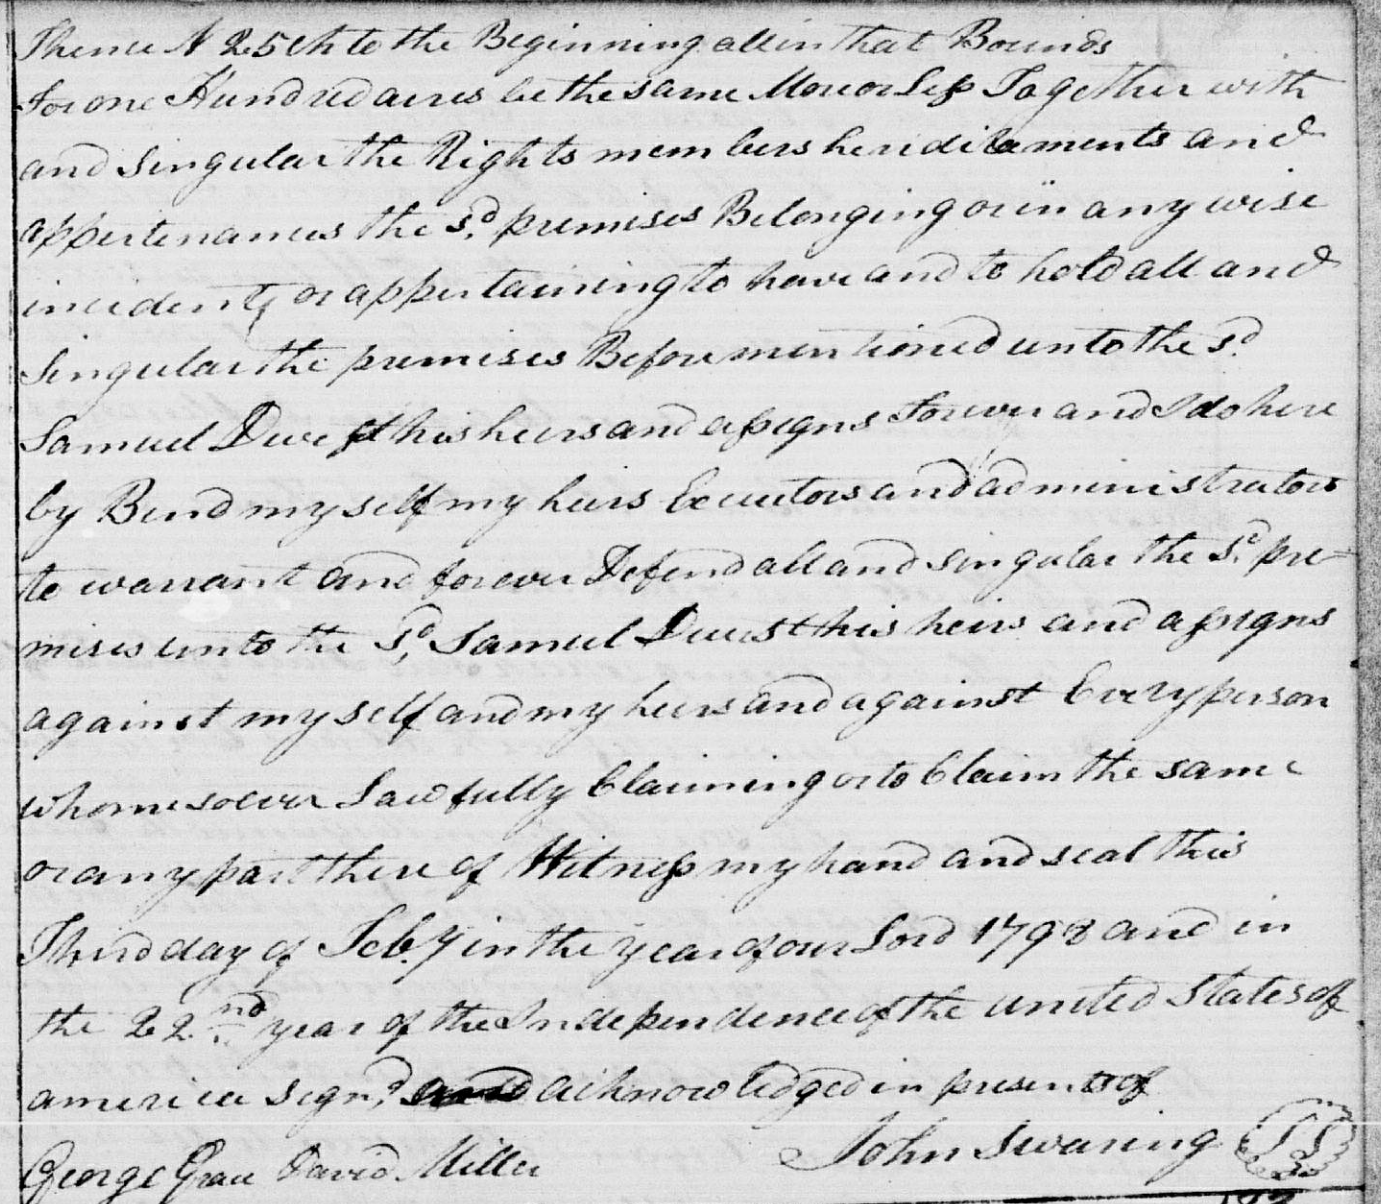 Thence N 25 ch to the Beginning all in that Bounds
for one Hundred acres be the same More or Less Together with
and Singular the Rights members heridilaments and
appertenances the sd. premises Belonging or in any wise
incident, or appertaining to have and to hold all and
Singular the premises Before mentioned unto the sd.
Samuel Duest his heirs and assigns Forever and I do here
by Bend my self my heirs Executors and administrators
to warrant and forever Defend all and singular the Sd. pre-
mises unto the Sd, Samuel Duest his heirs and assigns
against my self and my heirs and against Every person
whomesoever Lawfully Claiming or to Claim the same
or any part there of Witness my hand and seal this
Third day of Feb.y in the year of our Lord 1798 and in
the 22nd year of the Independence of the united States of
america Sign'd acknowledged in presents of
George Grau David Miller John Swaring LS